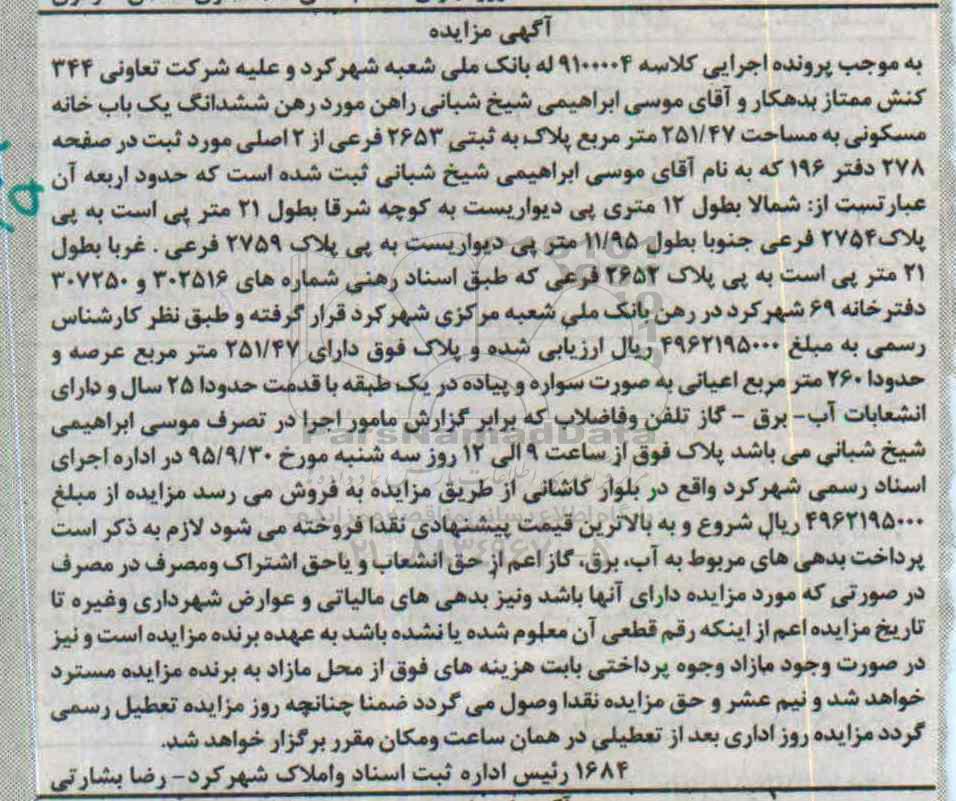 آگهی مزایده
به موجب پرونده اجرایی کلاسه ۹۱۰۰۰۰۴ له بانک ملی شعبه شهرکرد و علیه شرکت تعاونی ۳۴۴
کنش ممتاز بدهکار و آقای موسی ابراهیمی شیخ شبانی راهن مورد رهن ششدانگ یک باب خانه
مسکونی به مساحت ۲۵۱/۴۷ متر مربع پلاک به ثبتی ۲۶۵۳ فرعی از ۲ اصلی مورد ثبت در صفحه
۲۷۸ دفتر ۱۹۶ که به نام آقای موسی ابراهیمی شیخ شبانی ثبت شده است که حدود اربعه آن
عبارتست از: شمالا بطول ۱۲ متری پی دیواریست به کوچه شرقا بطول ۲۱ متر پی است به پی
پلاک۲۷۵۴ فرعی جنوبا بطول ۱۱/۹۵ متر پی دیواریست به پی پلاک ۲۷۵۹ فرعی . غربا بطول
۲۱ متر پی است به پی پلاک ۲۶۵۲ فرعی که طبق اسناد رهنی شماره های ۳۰۲۵۱۶ و ۳۰۷۲۵۰
دفترخانه ۶۹ شهرکرد در رهن بانک ملی شعبه مرکزی شهرکرد قرار گرفته و طبق نظر کارشناس
رسمی به مبلغ ۴۹۶۲۱۹۵۰۰۰ ریال ارزیابی شده و پلاک فوق دارای ۲۵۱/۴۷ متر مربع عرصه و
حدودا ۲۶۰ متر مربع اعیانی به صورت سواره و پیاده در یک طبقه با قدمت حدودا ۲۵ سال و دارای
انشعابات آب- برق - گاز تلفن وفاضلاب که برابر گزارش مامور اجرا در تصرف موسی ابراهیمی
ParsNamadData
شیخ شبانی می باشد پلاک فوق از ساعت ۹ الی ۱۲ روز سه شنبه مورخ ۹۵/۹/۳۰ در اداره اجرای
اسناد رسمی شهرکرد واقع در بلوار کاشانی از طریق مزایده به فروش می رسد مزایده از مبلغ
۴۹۶۲۱۹۵۰۰۰ ریال شروع و به بالاترین قیمت پیشنهادی نقدا فروخته می شود لازم به ذکر است
پرداخت بدهی های مربوط به آب، برق، گاز اعم از حق انشعاب و یاحق اشتراک ومصرف در مصرف
در صورتی که مورد مزایده دارای آنها باشد ونیز بدهی های مالیاتی و عوارض شهرداری وغیره تا
تاریخ مزایده اعم از اینکه رقم قطعی آن معلوم شده یا نشده باشد به عهده برنده مزایده است و نیز
در صورت وجود مازاد وجوه پرداختی بابت هزینه های فوق از محل مازاد به برنده مزایده مسترد
خواهد شد و نیم عشر و حق مزایده نقدا وصول می گردد ضمنا چنانچه روز مزایده تعطیل رسمی
گردد مزایده روز اداری بعد از تعطیلی در همان ساعت ومکان مقرر برگزار خواهد شد.
۱۶۸۴ رئیس اداره ثبت اسناد واملاک شهرکرد- رضا بشارتی